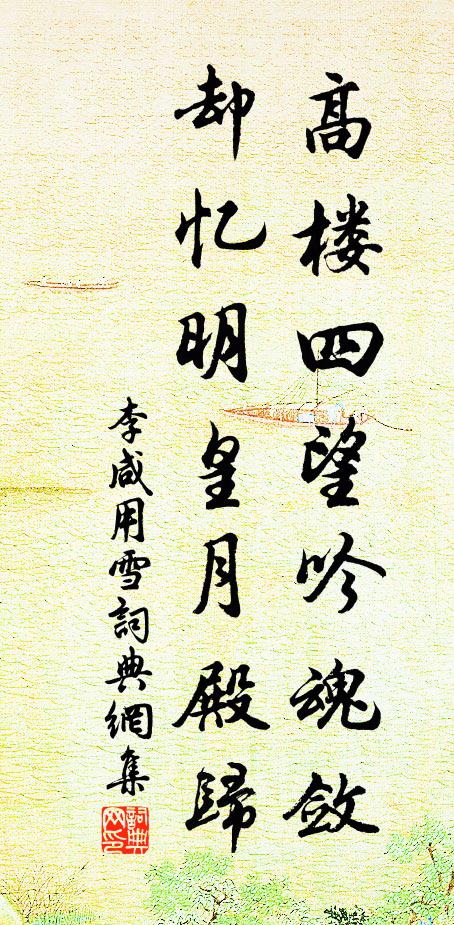 高楼四望吟魂敛
却忆明皇月殿歸
李咸用雪詞典網集
詞典网印